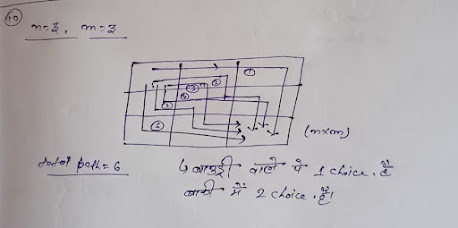 10
n=3, m=3
1
2
3
4
5
6
(n×m)
total path = 6
↳ बाउंड्री वाले पे 1 choice है
बाकी में 2 choice है।